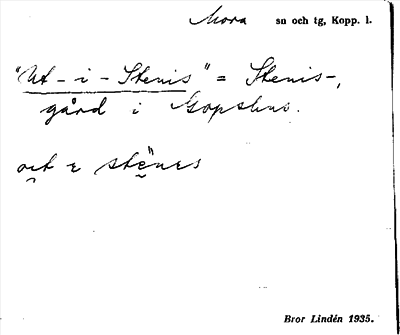 Mora sn och tg, Kopp. l.
"Ut-i-Stenis" = Stenis-,
gård i Gopshus.
stënes
Bror Lindén 1935.